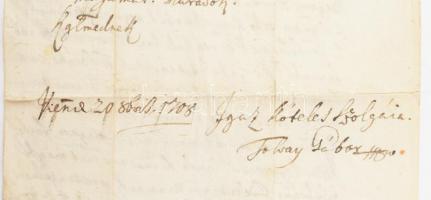 maradok.
Kglmednek
Viennæ 20 8bris 1708 Igaz köteles szolgáia.
Tolvay Gábor